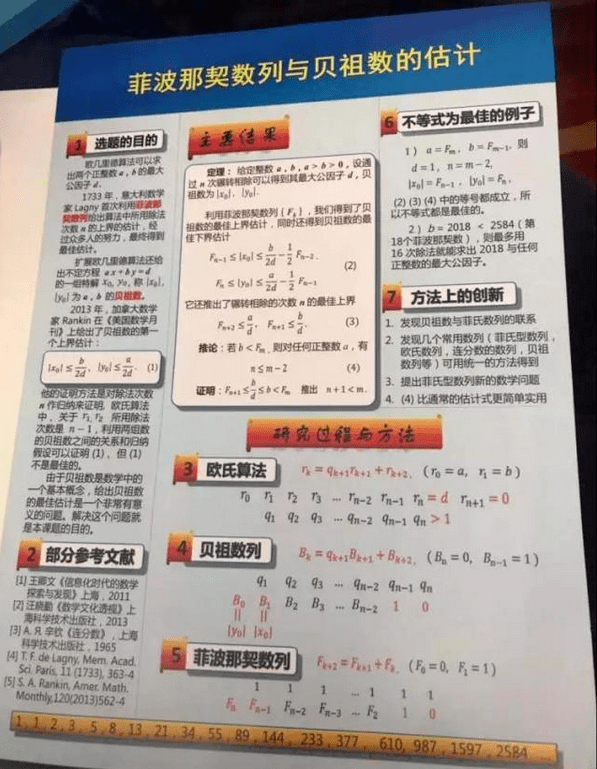 菲波那契数列与贝祖数的估计
1 选题的目的
欧几里德算法可以求
出两个正整数 a, b 的最大
公因子 d.
1733 年，意大利数学
家 Lagny 首次利用菲波那
契数列给出算法中所用除法
次数 n 的上界的估计，经
过众多人的努力，最终得到
最佳估计。
扩展欧几里德算法还给
出不定方程 ax + by = d
的一组特解 x₀, y₀, 称 |x₀|,
|y₀| 为 a, b 的贝祖数。
2013 年，加拿大数学
家 Rankin 在《美国数学月
刊》上给出了贝祖数的第一
个上界估计：
|x₀| ≤ b/2d, |y₀| ≤ a/2d. (1)
他的证明方法是对除法次数
n 作归纳来证明, 欧氏算法
中，关于 r₁, r₂ 所用除法
次数是 n − 1，利用两组数
的贝祖数之间的关系和归纳
假设可以证明 (1)、但 (1)
不是最佳的。
由于贝祖数是数学中的
一个基本概念，给出贝祖数
的最佳估计是一个非常有意
义的问题。解决这个问题就
是本课题的目的。
2 部分参考文献
[1] 王卿文《信息化时代的数学
探索与发现》上海，2011
[2] 汪晓勤《数学文化透视》上
海科学技术出版社，2013
[3] А. Я. 辛钦《连分数》，上海
科学技术出版社，1965
[4] T. F. de Lagny, Mem. Acad.
Sci. Paris, 11 (1733), 363-4
[5] S. A. Rankin, Amer. Math.
Monthly,120(2013)562-4
主要结果
定理： 给定整数 a, b, a > b > 0, 设通
过 n 次辗转相除可以得到其最大公因子 d, 贝
祖数为 |x₀|, |y₀|.
利用菲波那契数列 {Fₖ}，我们得到了贝
祖数的最佳上界估计，同时还得到贝祖数的最
佳下界估计
Fₙ₋₁ ≤ |x₀| ≤ b/2d − 1/2 Fₙ₋₂.
(2)
Fₙ ≤ |y₀| ≤ a/2d − 1/2 Fₙ₋₁
它还推出了辗转相除的次数 n 的最佳上界
Fₙ₊₂ ≤ a/d, Fₙ₊₁ ≤ b/d. (3)
推论：若 b < Fₘ, 则对任何正整数 a，有
n ≤ m − 2 (4)
证明：Fₙ₊₁ ≤ b/d ≤ b < Fₘ 推出 n + 1 < m.
6 不等式为最佳的例子
1） a = Fₘ, b = Fₘ₋₁, 则
d = 1, n = m − 2,
|x₀| = Fₙ₋₁, |y₀| = Fₙ,
(2) (3) (4) 中的等号都成立，所
以不等式都是最佳的。
2）b = 2018 < 2584（第
18个菲波那契数），则最多用
16 次除法就能求出 2018 与任何
正整数的最大公因子。
7 方法上的创新
1. 发现贝祖数与菲氏数列的联系
2. 发现几个常用数列（菲氏型数列，
欧氏数列，连分数的数列，贝祖
数列等）可用统一的方法得到
3. 提出菲氏型数列新的数学问题
4. (4) 比通常的估计式更简单实用
研究过程与方法
3 欧氏算法 rₖ = qₖ₊₁rₖ₊₁ + rₖ₊₂, (r₀ = a, r₁ = b)
r₀ r₁ r₂ r₃ ... rₙ₋₂ rₙ₋₁ rₙ = d rₙ₊₁ = 0
q₁ q₂ q₃ ... qₙ₋₂ qₙ₋₁ qₙ > 1
4 贝祖数列 Bₖ = qₖ₊₁Bₖ₊₁ + Bₖ₊₂, (Bₙ = 0, Bₙ₋₁ = 1)
q₁ q₂ q₃ ... qₙ₋₂ qₙ₋₁ qₙ
B₀ B₁ B₂ B₃ ... Bₙ₋₂ 1 0
|| ||
|y₀| |x₀|
5 菲波那契数列 Fₖ₊₂ = Fₖ₊₁ + Fₖ, (F₀ = 0, F₁ = 1)
1 1 1 ... 1 1 1
Fₙ Fₙ₋₁ Fₙ₋₂ Fₙ₋₃ ... F₂ 1 0
1, 1, 2, 3, 5, 8, 13, 21, 34, 55, 89, 144, 233, 377, 610, 987, 1597, 2584 ...